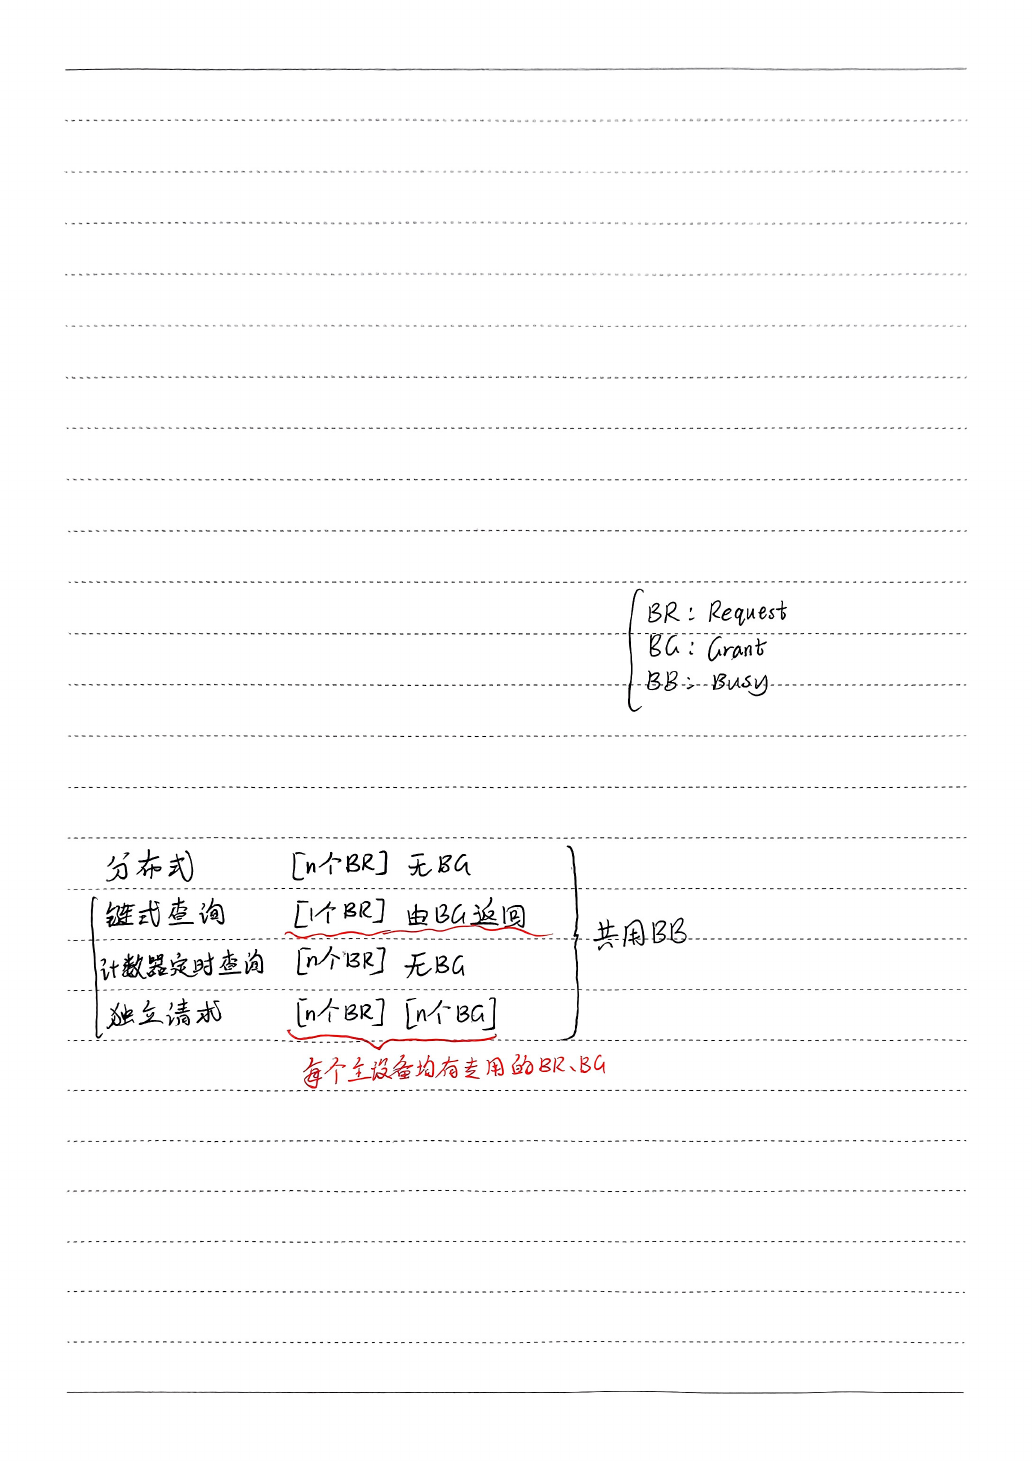 BR: Request
BG: Grant
BB: Busy
分布式 [n个BR] 无BG
链式查询 [1个BR] 由BG返回
共用BB
计数器定时查询 [n个BR] 无BG
独立请求 [n个BR] [n个BG]
每个主设备均有专用的BR、BG